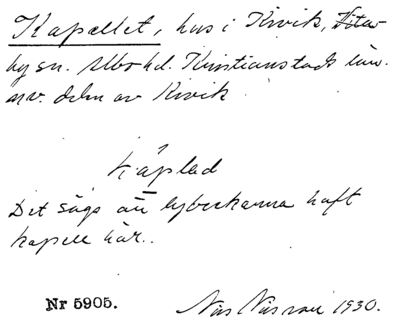 Kapellet, hus i Kivik, Vita-
by sn. Albo hd. Kristianstads län.
nv. delen av Kivik
kápləd
Det sägs att lybeckarna haft
kapell här..
Nr 5905. Nils Nilsson 1930.